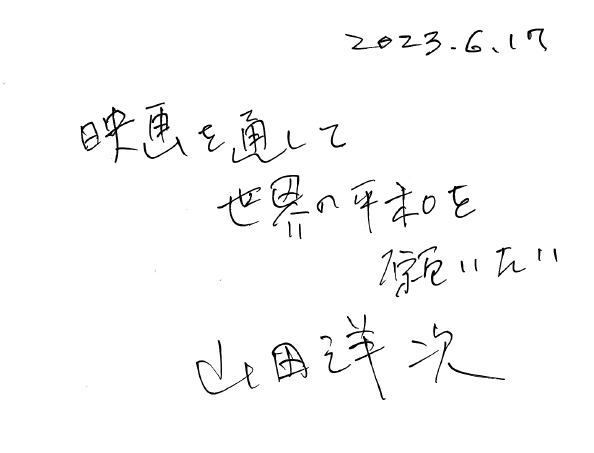 2023.6.17
映画を通して
世界の平和を
願いたい
山田洋次